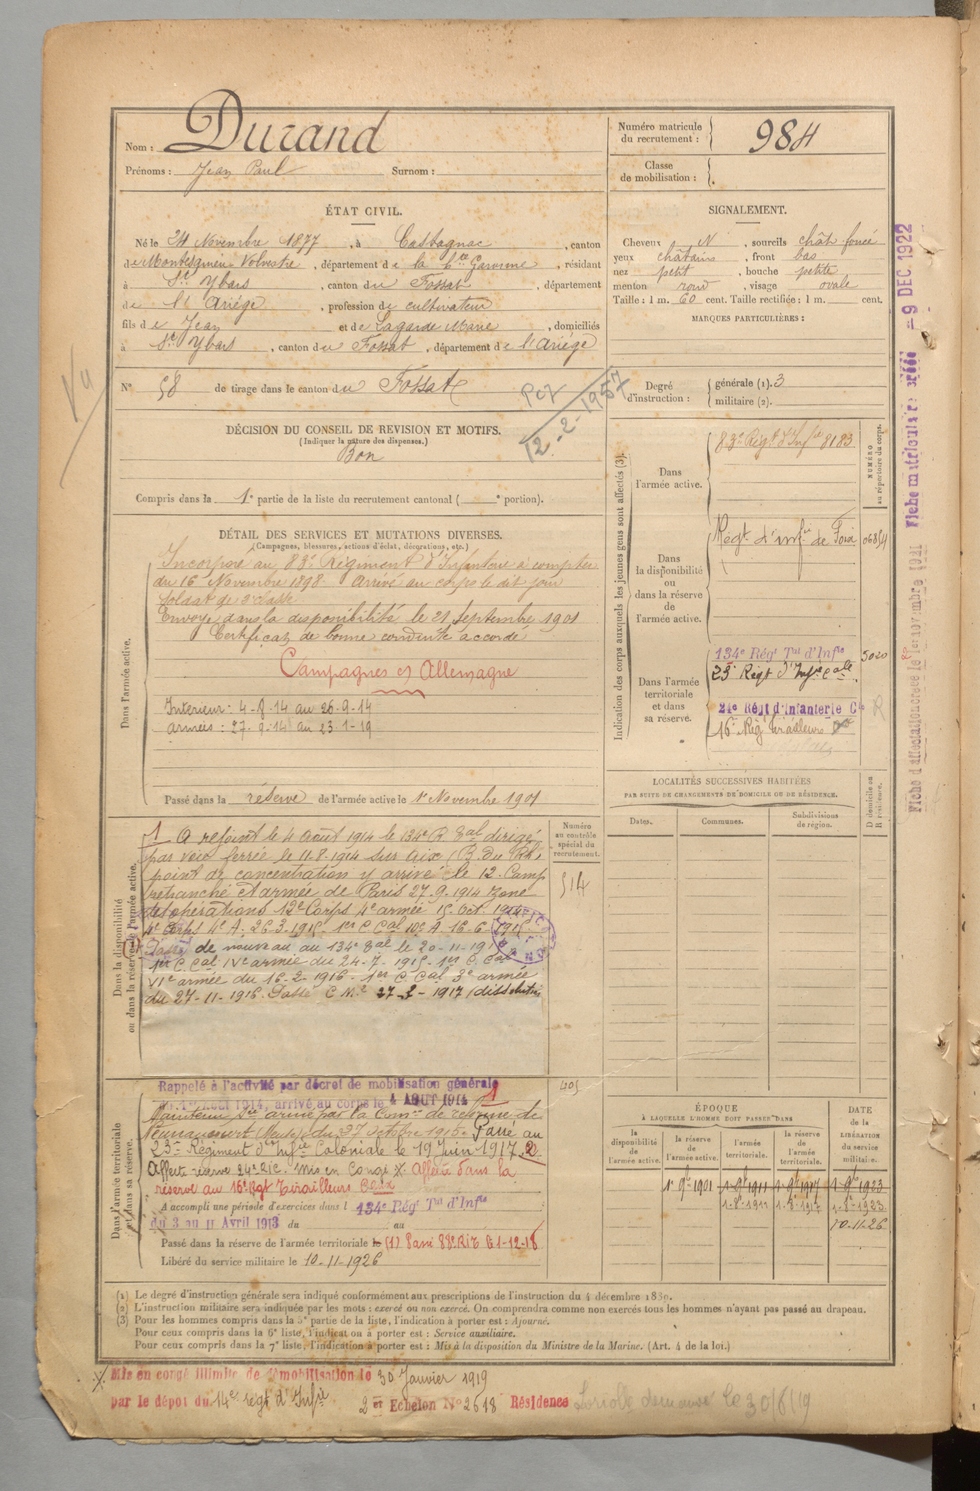 Nom : Durand
Prénoms : Jean Paul Surnom :
Numéro matricule du recrutement : 984
Classe de mobilisation :
ÉTAT CIVIL.
Né le 24 Novembre 1877, à Castagnac, canton
de Montesquieu Volvestre, département de la Hte Garonne, résidant
à St Ybars, canton du Fossat, département
de l'Ariège, profession de cultivateur
fils de Jean et de Lagarde Marie, domiciliés
à St Ybars, canton du Fossat, département de l'Ariège
N° 58 de tirage dans le canton du Fossat
12-2-1957
DÉCISION DU CONSEIL DE REVISION ET MOTIFS.
(Indiquer la nature des dispenses.)
Bon
Compris dans la 1e partie de la liste du recrutement cantonal ( e portion).
SIGNALEMENT.
Cheveux N, sourcils chât foncé
yeux châtains, front bas
nez petit, bouche petite
menton rond, visage ovale
Taille : 1 m. 60 cent. Taille rectifiée : 1 m. cent.
MARQUES PARTICULIÈRES :
Degré d'instruction : générale (1). 3
militaire (2).
DÉTAIL DES SERVICES ET MUTATIONS DIVERSES.
(Campagnes, blessures, actions d'éclat, décorations, etc.)
Dans l'armée active.
Incorporé au 83e Régiment d'Infanterie à compter
du 16 Novembre 1898. Arrivé au corps le dit jour
soldat de 2e classe
Envoyé dans la disponibilité le 21 Septembre 1901
Certificat de bonne conduite accordé
Campagnes Allemagne
Intérieur : 4-8-14 au 26-9-14
armées : 27-9-14 au 23-1-19
Passé dans la réserve de l'armée active le 1er Novembre 1901
Indication des corps auxquels les jeunes gens sont affectés (3).
NUMÉRO au répertoire du corps.
Dans l'armée active.
83e Régt d'Infie 8183
Dans la disponibilité ou dans la réserve de l'armée active.
Régt d'infie de Foix
Dans l'armée territoriale et dans sa réserve.
134e Régt Tal d'Infie 5020
23e Régt d'Infie Cale
24e Régt d'Infanterie Cle
16e Rég Tirailleurs
LOCALITÉS SUCCESSIVES HABITÉES
PAR SUITE DE CHANGEMENTS DE DOMICILE OU DE RÉSIDENCE.
Dates. Communes. Subdivisions de région.
D domicile ou R résidence.
Dans la disponibilité ou dans la réserve de l'armée active.
Numéro au contrôle spécial du recrutement.
514
1 A rejoint le 4 août 1914 le 134e R Tal dirigé
par voie ferrée le 11-8-1914 sur Aix (B. du Rh.)
point de concentration y arrivé le 12. Camp
retranché et armée de Paris 27-9-1914 zone
des opérations 12e Corps 4e armée 15 Oct. 1914
4e Corps 4e A. 26-3-1915 1er C Cal IVe A 16-6-1915
Passé de nouveau au 134e Tal le 20-11-191
1er C Cal IVe armée du 24-7-1915 1er C. Cal
VIe armée du 16-2-1916 1er C. Cal 3e armée
du 27-11-1916. Passé 27-2-1917 (dissolution
Dans l'armée territoriale et dans sa réserve.
Rappelé à l'activité par décret de mobilisation générale
du 1er Août 1914, arrivé au corps le 4 AOUT 1914 1
Maintenu Sce armé par la Comon de réforme de
(Meuse) du 27 octobre 1915. Passé au
23e Régiment d'Infie Coloniale le 19 Juin 1917. 2
Affecté réserve 24e RIC. Mis en Congé X Affecté dans la
réserve au 16e Rgt Tirailleurs
A accompli une période d'exercices dans l 134e Rég Tal d'Infie
du 3 au 11 Avril 1913 du au
Passé dans la réserve de l'armée territoriale le
Libéré du service militaire le 10-11-1926
ÉPOQUE
À LAQUELLE L'HOMME DOIT PASSER DANS
la disponibilité de l'armée active. la réserve de l'armée active. l'armée territoriale. la réserve de l'armée territoriale.
DATE DE LA LIBÉRATION du service militaire.
1er 9bre 1901 1-9bre 1911 1-9bre 1917 1-9bre 1923
10-11-26
(1) Le degré d'instruction générale sera indiqué conformément aux prescriptions de l'instruction du 4 décembre 1889.
(2) L'instruction militaire sera indiquée par les mots : exercé ou non exercé. On comprendra comme non exercés tous les hommes n'ayant pas passé au drapeau.
(3) Pour les hommes compris dans la 5e partie de la liste, l'indication à porter est : Ajourné.
Pour ceux compris dans la 6e liste, l'indication à porter est : Service auxiliaire.
Pour ceux compris dans la 7e liste, l'indication à porter est : Mis à la disposition du Ministre de la Marine. (Art. 4 de la loi.)
X Mis en congé illimité de démobilisation le 30 Janvier 1919
par le dépôt du 14e régt d'Infie 2 er Echelon N° 2618 Résidence
le 30/6/19
- 9 DEC. 1922